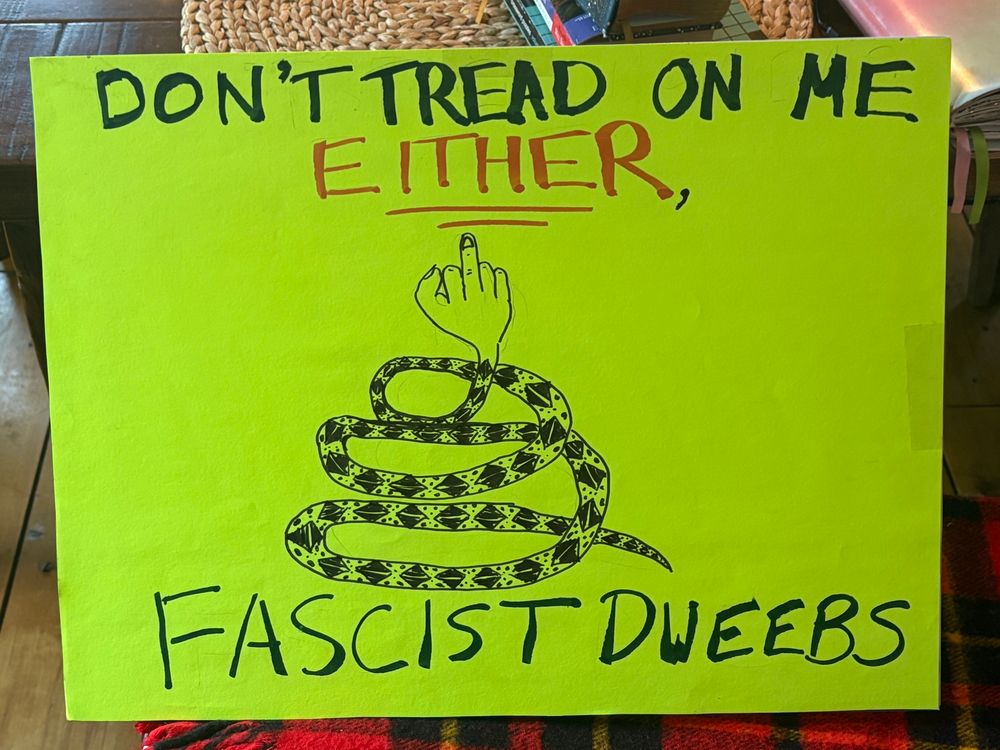 DON'T TREAD ON ME
EITHER,
FASCIST DWEEBS